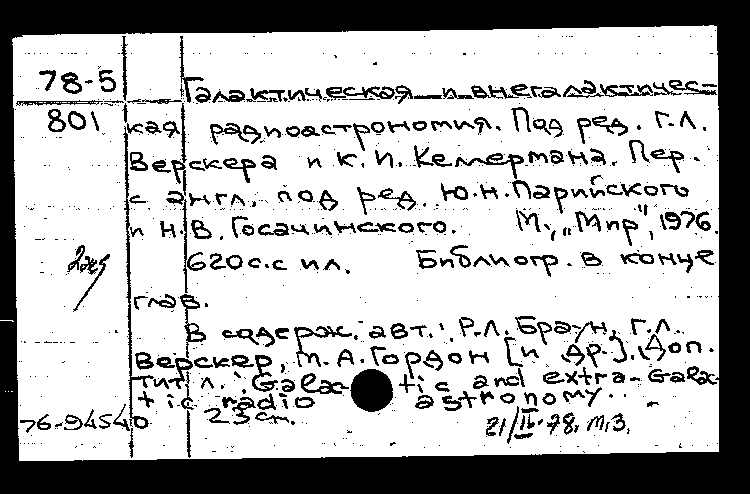 78-5 Галактическая и внегалактичес-
801 кая радиоастрономия. Под ред. Г.Л.
Верскера и К.И. Келлермана. Пер.
с англ. под ред. Ю.Н. Парийского
и Н.В. Госачинского. М., „Мир", 1976.
2экз 620с. с ил. Библиогр. в конце
глав.
В содерж. авт.: Р.Л. Браун, Г.Л.
Верскер, М.А. Гордон [и др.]. Доп.
тит. л.: Galac tic and extra-Galac
tic radio astronomy.
76-94540 23 см. 21/II-78. М.З.